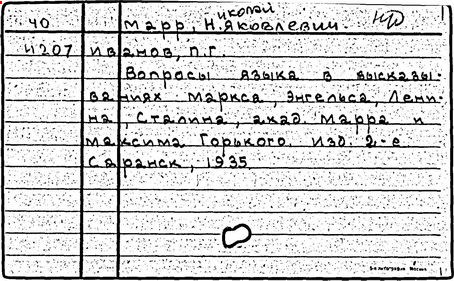 40 Марр, Николай Яковлевич.
И207 Иванов, П.Г.
Вопросы языка в высказы-
ваниях Маркса, Энгельса, Лени-
на, Сталина, акад. Марра и
Максима Горького. Изд. 2-е
Саранск, 1935